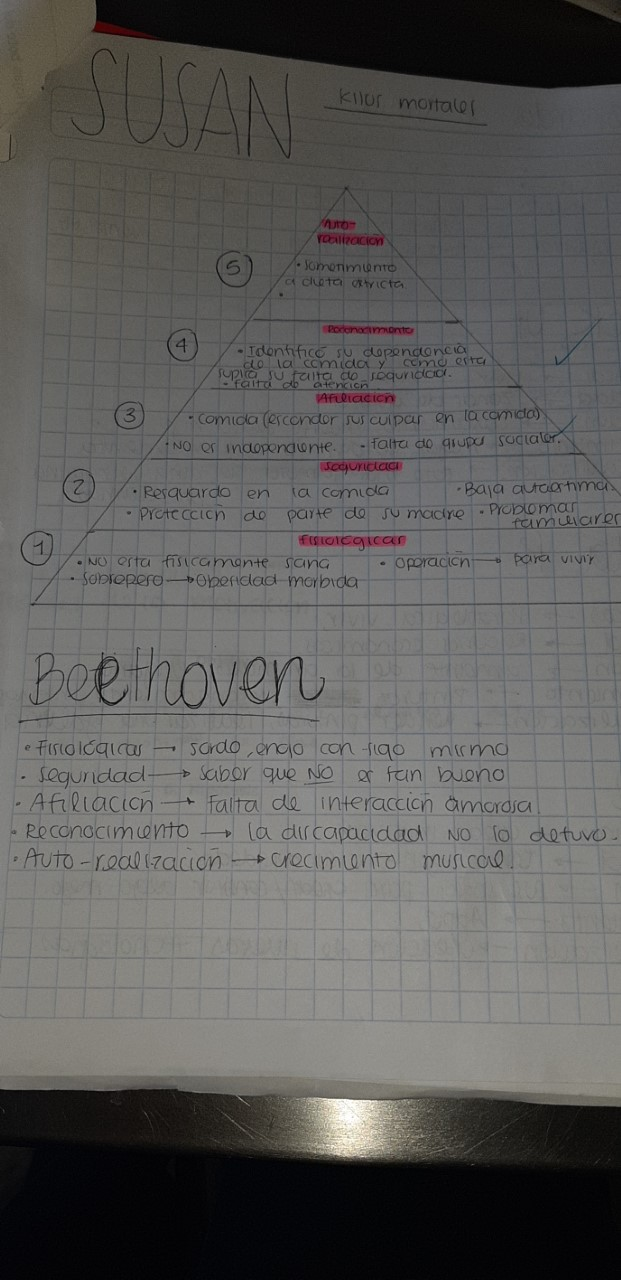 SUSAN
Kilos mortales
Auto-
realización
5
• Sometimiento
a dieta estricta
•
Reconocimiento
4
• Identificó su dependencia
de la comida y como esta
suplió su falta de seguridad.
• falta de atención
Afiliación
3
• Comida (esconder sus culpas en la comida)
• No es independiente. • falta de grupos sociales.
Seguridad
2
• Resguardo en la comida • Baja autoestima
• Protección de parte de su madre • Problemas
familiares
Fisiológicas
1
• No esta físicamente sana • Operación → para vivir
• Sobrepeso → Obesidad mórbida
Beethoven
• Fisiológicas → sordo, enojo con sigo mismo
• Seguridad → Saber que NO es tan bueno
• Afiliación → Falta de interacción amorosa.
• Reconocimiento → la discapacidad NO lo detuvo.
• Auto-realización → crecimiento musical.